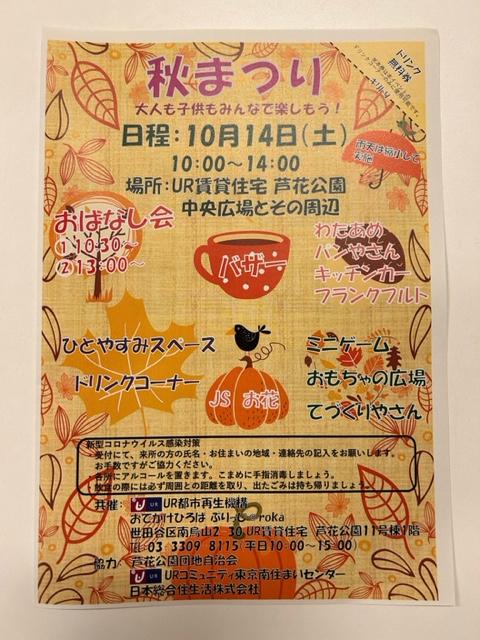 秋まつり
大人も子供もみんなで楽しもう！
ドリンク
無料券
キリトリ
日程：10月14日（土）
10:00～14:00
雨天は縮小して
実施
場所：UR賃貸住宅 芦花公園
中央広場とその周辺
おはなし会
① 10:30～
② 13:00～
バザー
わたあめ
パンやさん
キッチンカー
フランクフルト
ひとやすみスペース
ドリンクコーナー
JS お花
ミニゲーム
おもちゃの広場
てづくりやさん
新型コロナウイルス感染対策
受付にて、来所の方の氏名・お住まいの地域・連絡先の記入をお願いします。
お手数ですがご協力ください。
各所にアルコールを置きます。こまめに手指消毒しましょう。
飲食の際には必ず周囲との距離を取り、出たごみは持ち帰りましょう。
共催： UR UR都市再生機構
おでかけひろば ぶりっじ@roka
世田谷区南烏山2-30 UR賃貸住宅 芦花公園11号棟1階
TEL 03-3309-8115(平日10:00～15:00)
協力：芦花公園団地自治会
UR URコミュニティ東京南住まいセンター
日本総合住生活株式会社